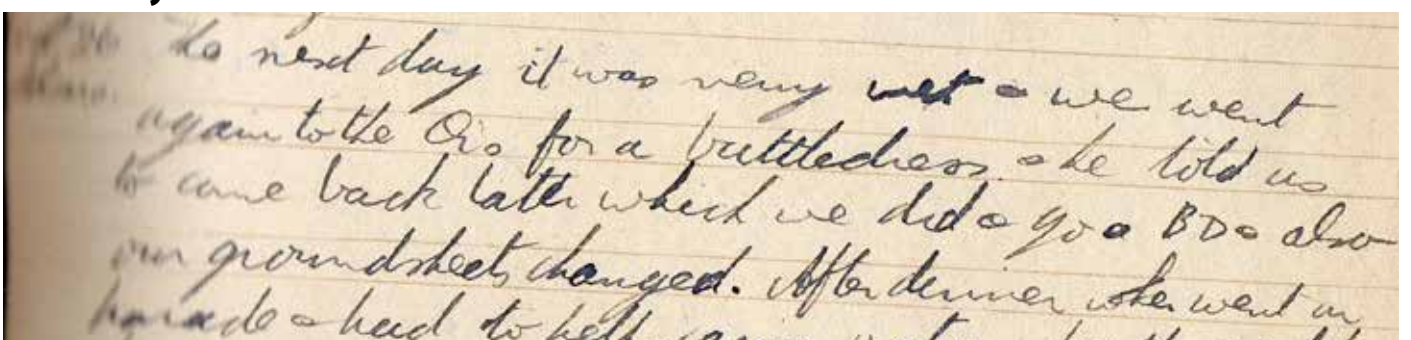 The next day it was very wet & we went
again to the Q.s for a battledress & he told us
to come back later which we did & got a BD & also
our groundsheets changed. After dinner when went on
parade & had to help